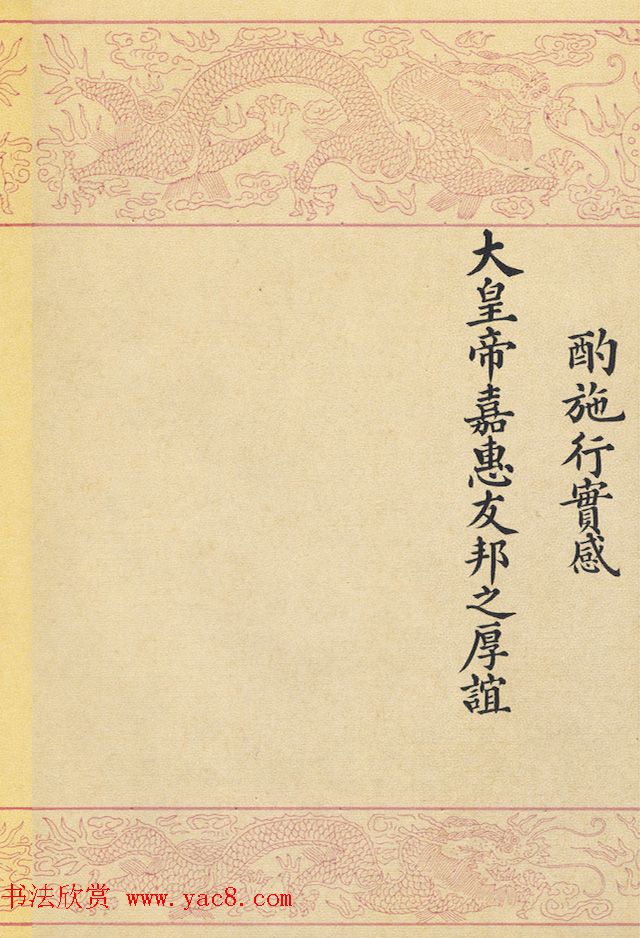 酌施行實感
大皇帝嘉惠友邦之厚誼
书法欣赏 www.yac8.com